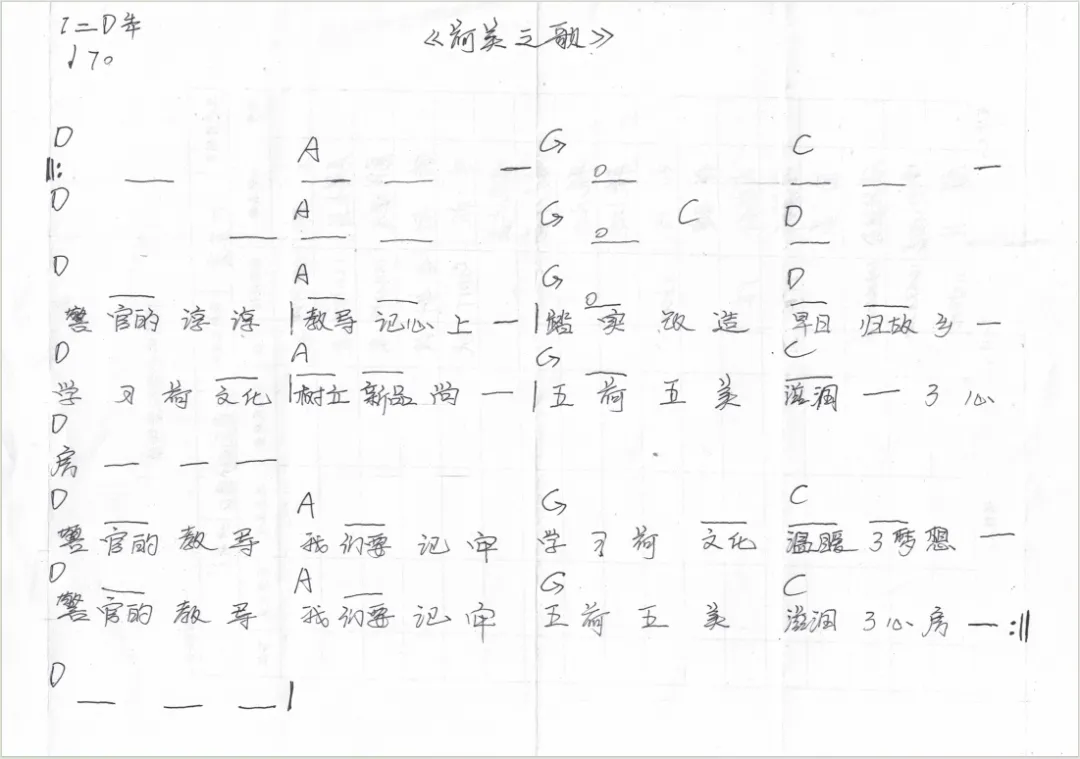 1=D 4/4
♩70
《荷美之歌》
D A G C
‖: — — — — 0 — — —
D A G C D
— — — 0 — —
D A G D
警官的谆谆 | 教导记心上 — | 0 踏实改造 早日归故乡 —
D A G C
学习荷文化 | 树立新品尚 — | 五荷五美 滋润 —了心
D
房 — — —
D A G C
警官的教导 我们要记牢 学习荷文化 温暖了梦想 —
D A G C
警官的教导 我们要记牢 五荷五美 滋润了心房 — :‖
D
— — — |